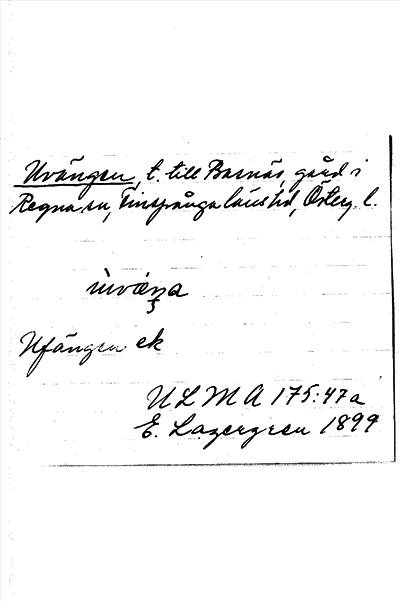 Uvängen, t. till Basnäs, gård i
Regna sn, Finspånga läns hd, Österg. l.
ùvæŋa
Ufängen ek
ULMA 175:47a
E. Lagergren 1899